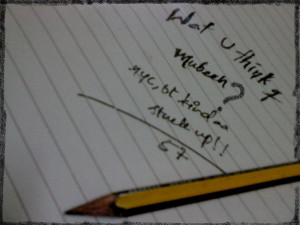 Wat u think of
Mubeen?
nyc, bt kindaa
stuck up!!
57